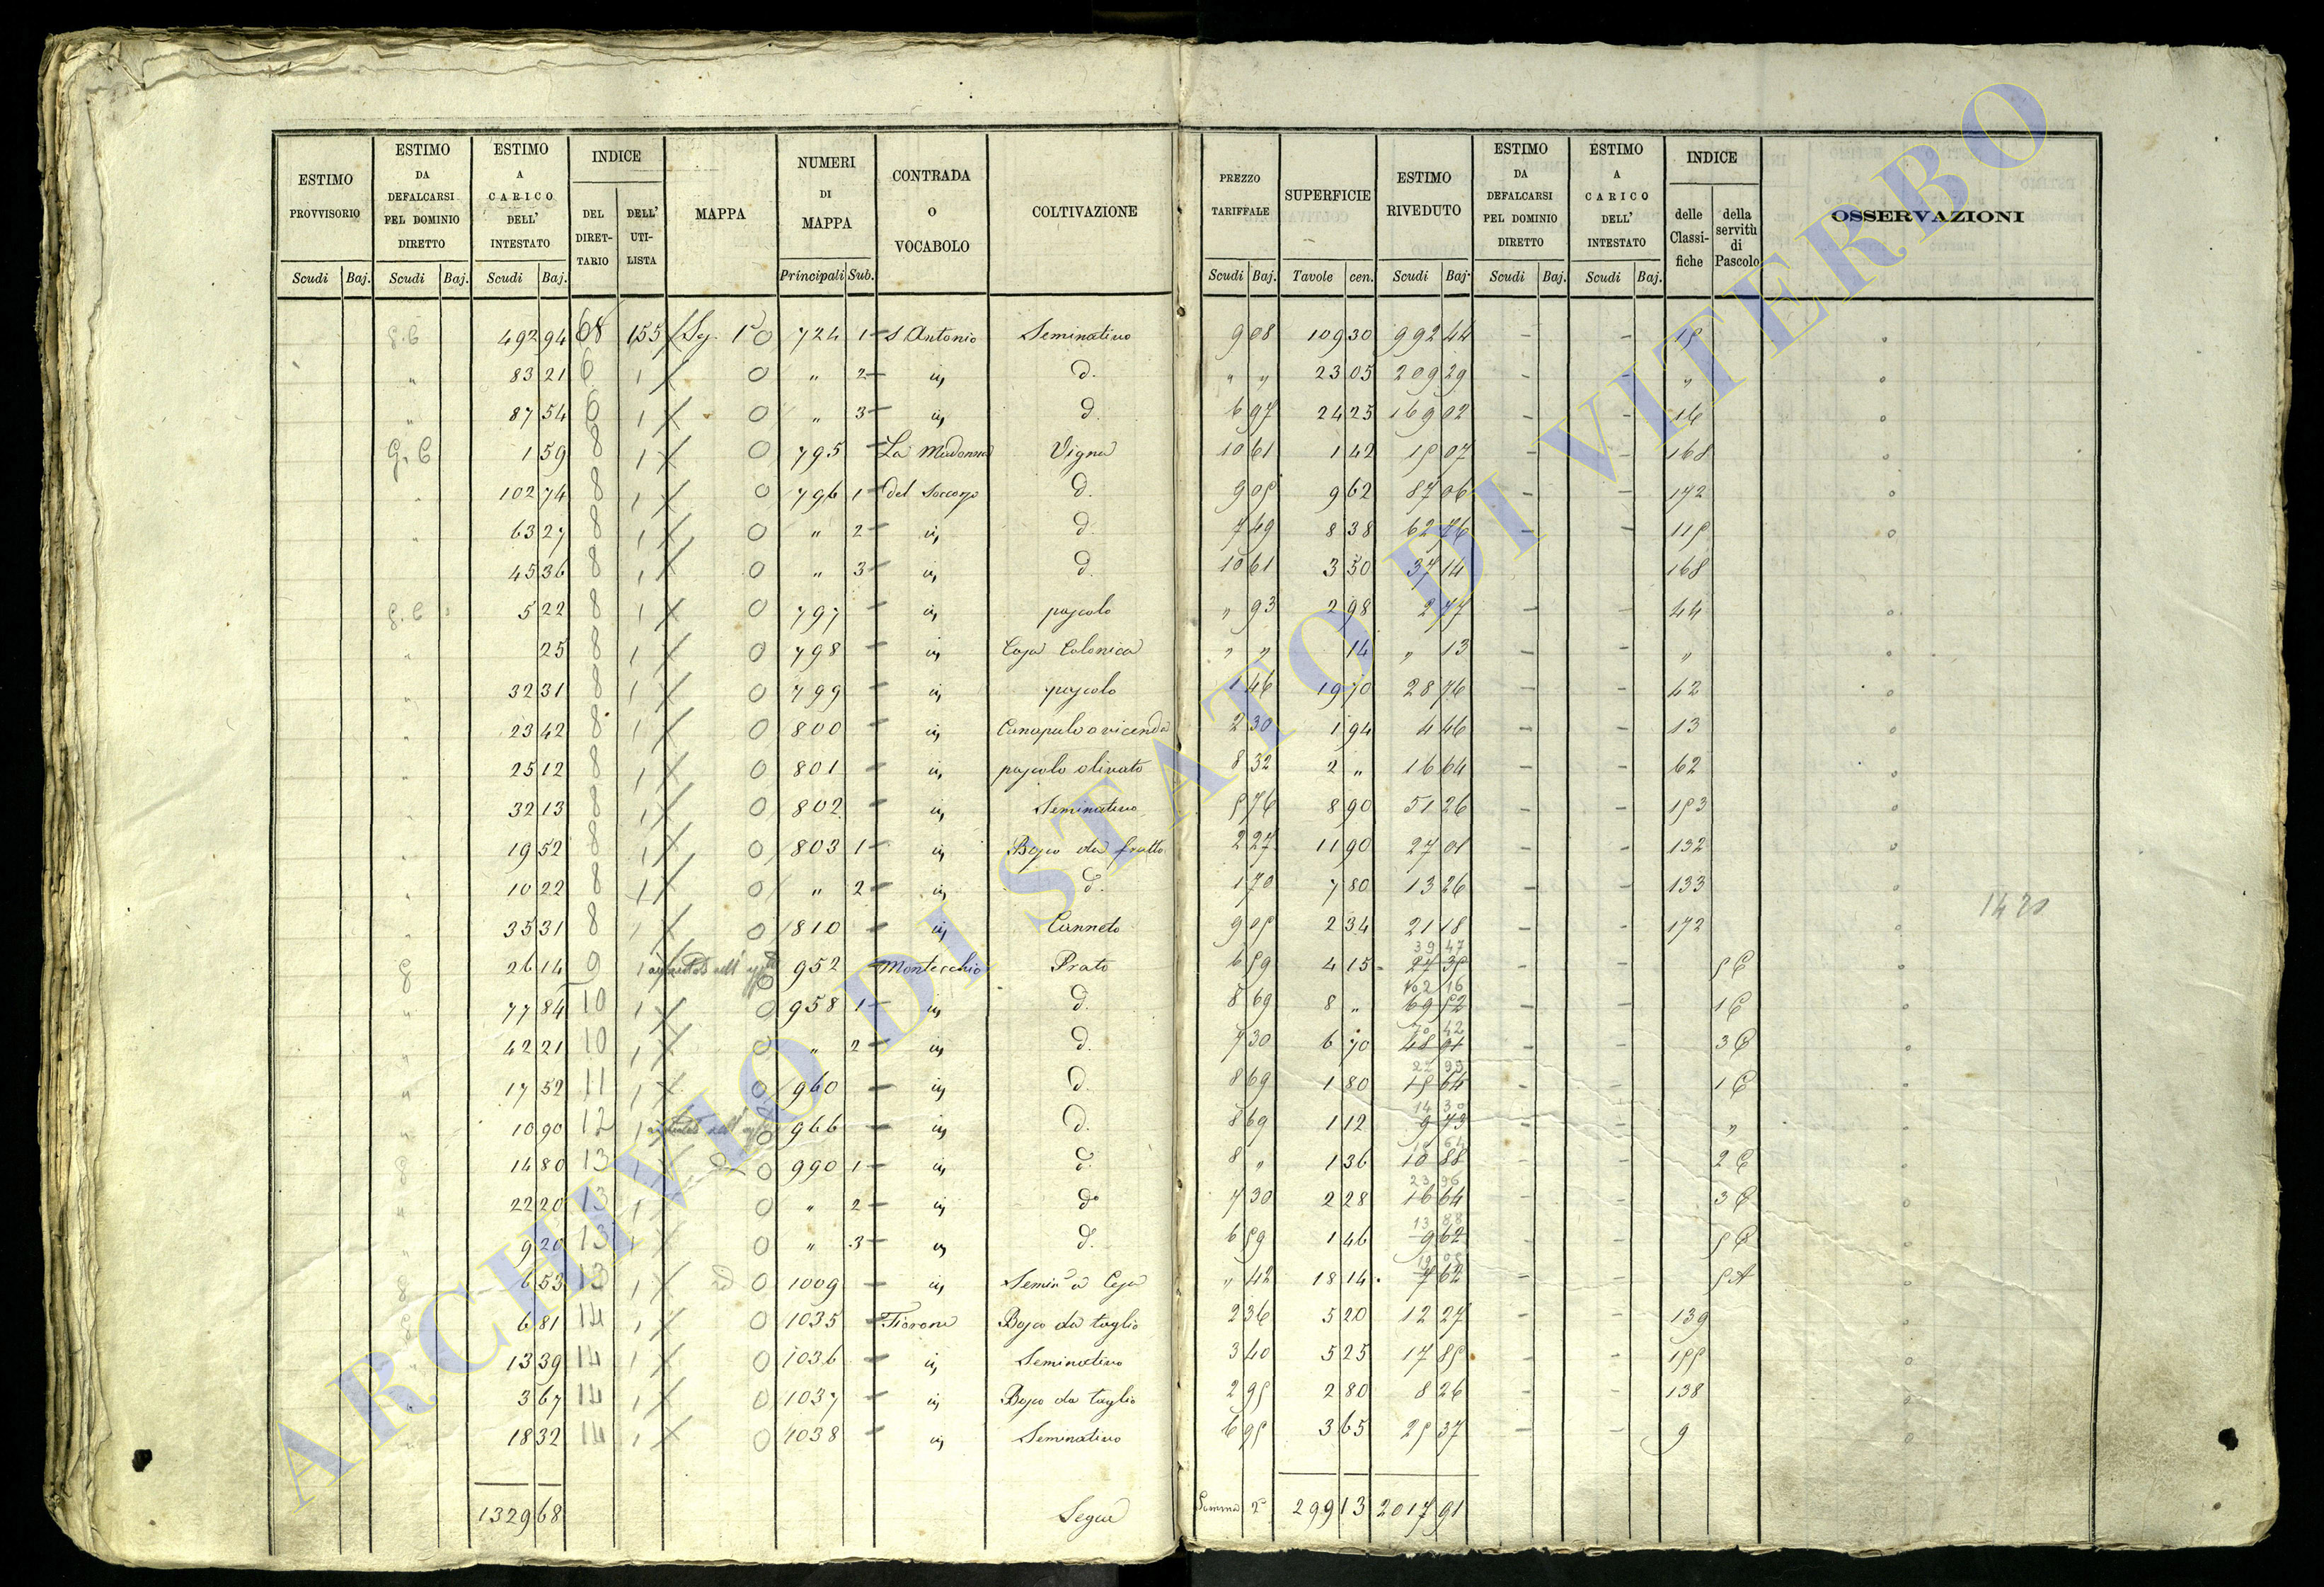 ESTIMO PROVVISORIO Scudi Baj. ESTIMO DA DEFALCARSI PEL DOMINIO DIRETTO Scudi Baj. ESTIMO A CARICO DELL' INTESTATO Scudi Baj. INDICE DEL DIRET-TARIO DELL' UTI-LISTA MAPPA NUMERI DI MAPPA Principali Sub. CONTRADA O VOCABOLO COLTIVAZIONE PREZZO TARIFFALE Scudi Baj. SUPERFICIE Tavole cen. ESTIMO RIVEDUTO Scudi Baj. ESTIMO DA DEFALCARSI PEL DOMINIO DIRETTO Scudi Baj. ESTIMO A CARICO DELL' INTESTATO Scudi Baj. INDICE delle Classi-fiche della servitù di Pascolo OSSERVAZIONI
492 94 68 155 724 1 S Antonio Seminativo 9 08 109 30 992 44 - - 15
83 21 6 1 0 " 2 in d. " " 23 05 209 29 - - "
87 54 6 1 0 " 3 in d. 6 97 24 25 169 02 - - 16
1 59 8 1 0 795 La Madonna Vigna 10 61 1 42 15 07 - - 168
102 74 8 1 0 796 1 del Soccorso d. 9 05 9 62 87 06 - - 172
63 27 8 1 0 " 2 in d. 7 49 8 38 62 76 - - 115
45 36 8 1 0 " 3 in d. 10 61 3 50 37 14 - - 168
5 22 8 1 0 797 in pascolo " 93 2 98 2 77 - - 44
25 8 1 0 798 in Casa Colonica " " 14 " 13 - - "
32 31 8 1 0 799 in pascolo 1 46 19 70 28 76 - - 42
23 42 8 1 0 800 in Canapulo a vicenda 2 30 1 94 4 46 - - 13
25 12 8 1 0 801 in pascolo olivato 8 32 2 " 16 64 - - 62
32 13 8 1 0 802 in Seminativo 5 76 8 90 51 26 - - 153
19 52 8 1 0 803 1 in Bosco da frutto 2 27 11 90 27 01 - - 132
10 22 8 1 0 " 2 in d. 1 70 7 80 13 26 - - 133
35 31 8 1 0 810 in Canneto 9 05 2 34 21 18 - - 172
26 14 9 1 952 Montecchio Prato 6 59 4 15 39 47 27 35 - - 5 C
77 84 10 1 0 958 1 in d. 8 69 8 " 102 16 69 52 - - 1 C
42 21 10 1 0 " 2 in d. 7 30 6 70 70 42 48 91 - - 3 C
17 52 11 1 0 960 in d. 8 69 1 80 22 99 15 64 - - 1 C
10 90 12 1 966 in d. 8 69 1 12 14 30 9 73 - - "
14 80 13 1 0 990 1 in d. 8 " 1 36 10 88 - - 2 C
22 20 13 1 0 " 2 in do 7 30 2 28 23 96 16 64 - - 3 C
9 20 13 1 0 " 3 in d. 6 59 1 46 13 88 9 62 - - 5 C
6 53 13 1 0 1009 in " 42 18 14 7 62 - - 5 A
6 81 14 1 0 1035 Fiorone Bosco da taglio 2 36 5 20 12 27 - - 139
13 39 14 1 0 1036 in Seminativo 3 40 5 25 17 85 - - 155
3 67 14 1 0 1037 in Bosco da taglio 2 95 2 80 8 26 - - 138
18 32 14 1 0 1038 in Seminativo 6 95 3 65 25 37 - - 9
1329 68 Segue Somma 299 13 2017 91
ARCHIVIO DI STATO DI VITERBO